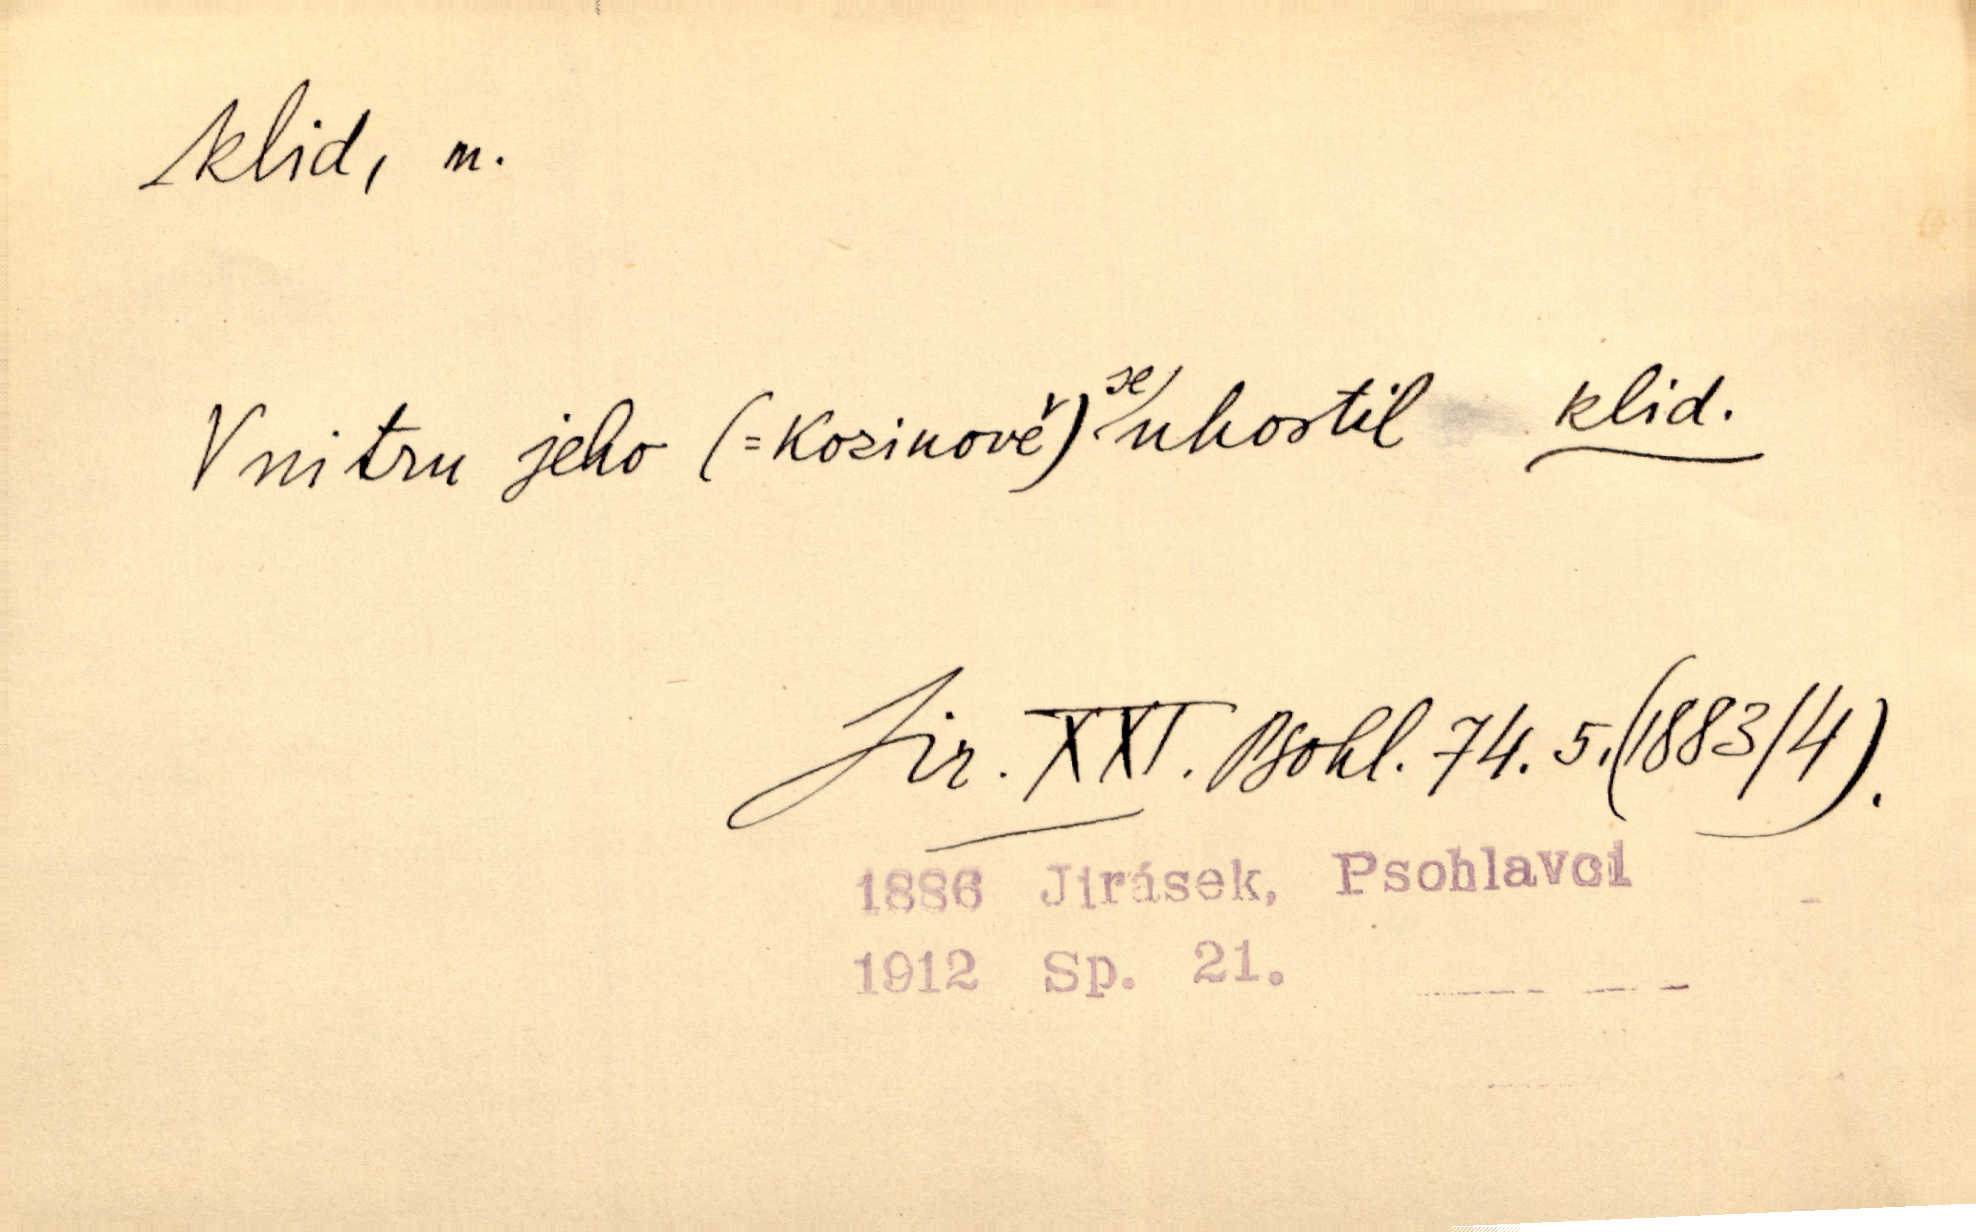 klid, m.
V nitru jeho (=Kozinově) se uhostil klid.
Jir. XXI. Psohl. 74. 5. (1883/4).
1886 Jirásek, Psohlavci
1912 Sp. 21.